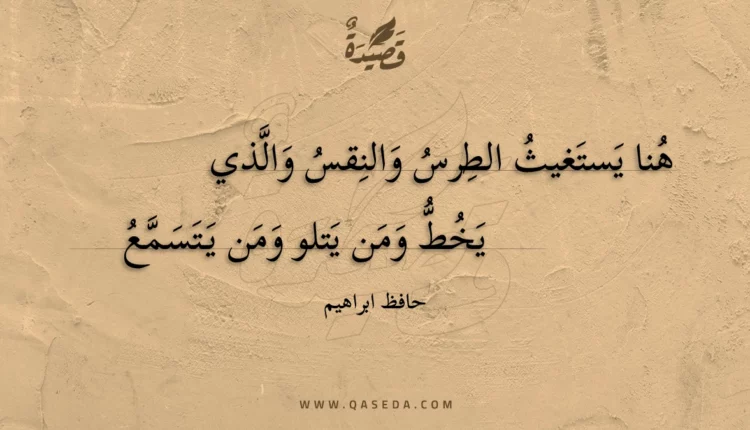 قَصِيدَةٌ
هُنا يَستَغيثُ الطِرسُ وَالنِقسُ وَالَّذي
يَخُطُّ وَمَن يَتلو وَمَن يَتَسَمَّعُ
حافظ ابراهيم
WWW.QASEDA.COM